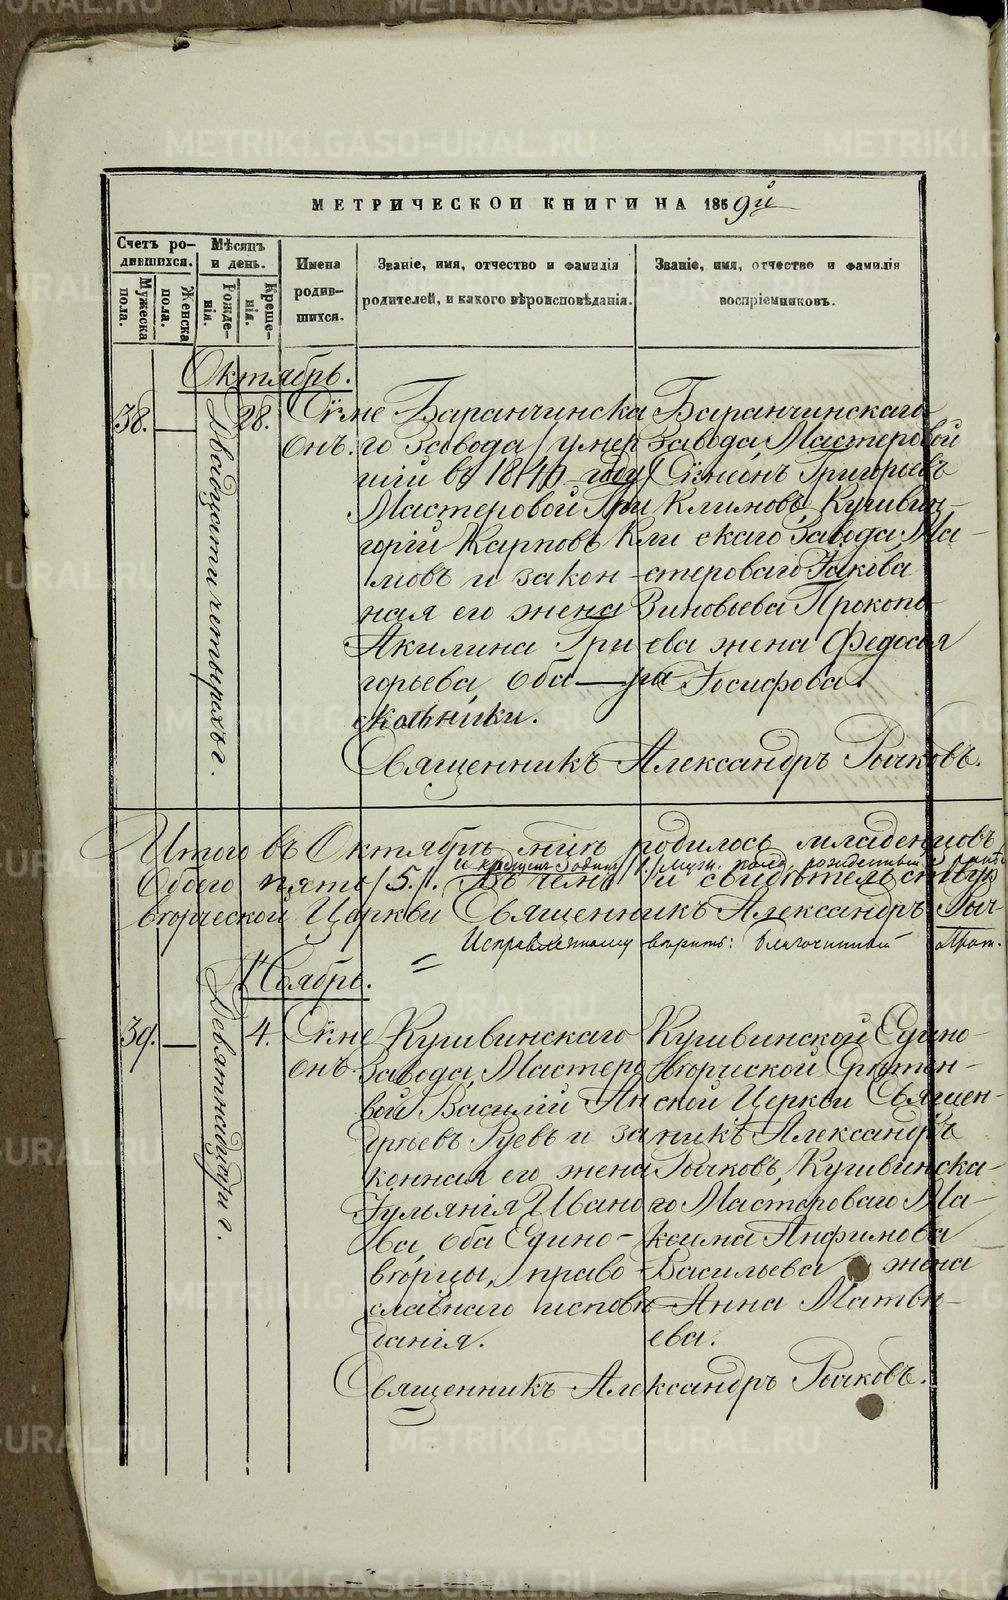 МЕТРИЧЕСКОЙ КНИГИ НА 1859й
Счетъ родившихся.
Мѣсяцъ и день.
Мужеска пола.
Женска пола.
Рожденія.
Крещенія.
Имена родившихся.
Званіе, имя, отчество и фамилія родителей, и какого вѣроисповѣданія.
Званіе, имя, отчество и фамилія воспріемниковъ.
Октябрь.
38.
Двадцать четвертаго.
28.
Сѵме
онъ.
Баранчинска
го Завода /умер
шій въ году/
Мастеровой Гри
горій Карповъ Кли
мовъ и закон
ная его жена
Акилина Гри
горьева, оба ра
скольники.
Баранчинскаго
Завода Мастеровой
Сѵмеонъ Григорьевъ
Климовъ, Кушвин-
скаго Завода Ма-
стероваго Іакова
Зиновьева Прокопь
ева жена Федосья
Іосифова.
Священникъ Александръ Рычковъ.
Итого въ Октябрѣ м҃цѣ родилось младенцовъ
и крещенъ одинъ /1./ муж. пола, рожденный
обоего пять /5./. Въ чемъ и свидѣтельствую
вѣрческой Церкви Священникъ Александръ Рыч
Исправленному вѣрить: Благочинный Прот.
Ноябрь.
39.
4.
Сѵме
онъ.
Кушвинскаго
Завода, Мастеро
вой Василій Ан
дреевъ Зуевъ и за
конная его жена
Іуліянія Ивано
ва, оба Едино-
вѣрцы, право
славнаго исповѣ
данія.
Кушвинской Едино
вѣрческой Срѣтен-
ской Церкви Священ-
никъ Александръ
Рычковъ, Кушвинска-
го Мастероваго Ма-
ксима Анфимова
Васильева жена
Анна Матвѣ-
ева.
Священникъ Александръ Рычковъ.
METRIKI.GASO-URAL.RU